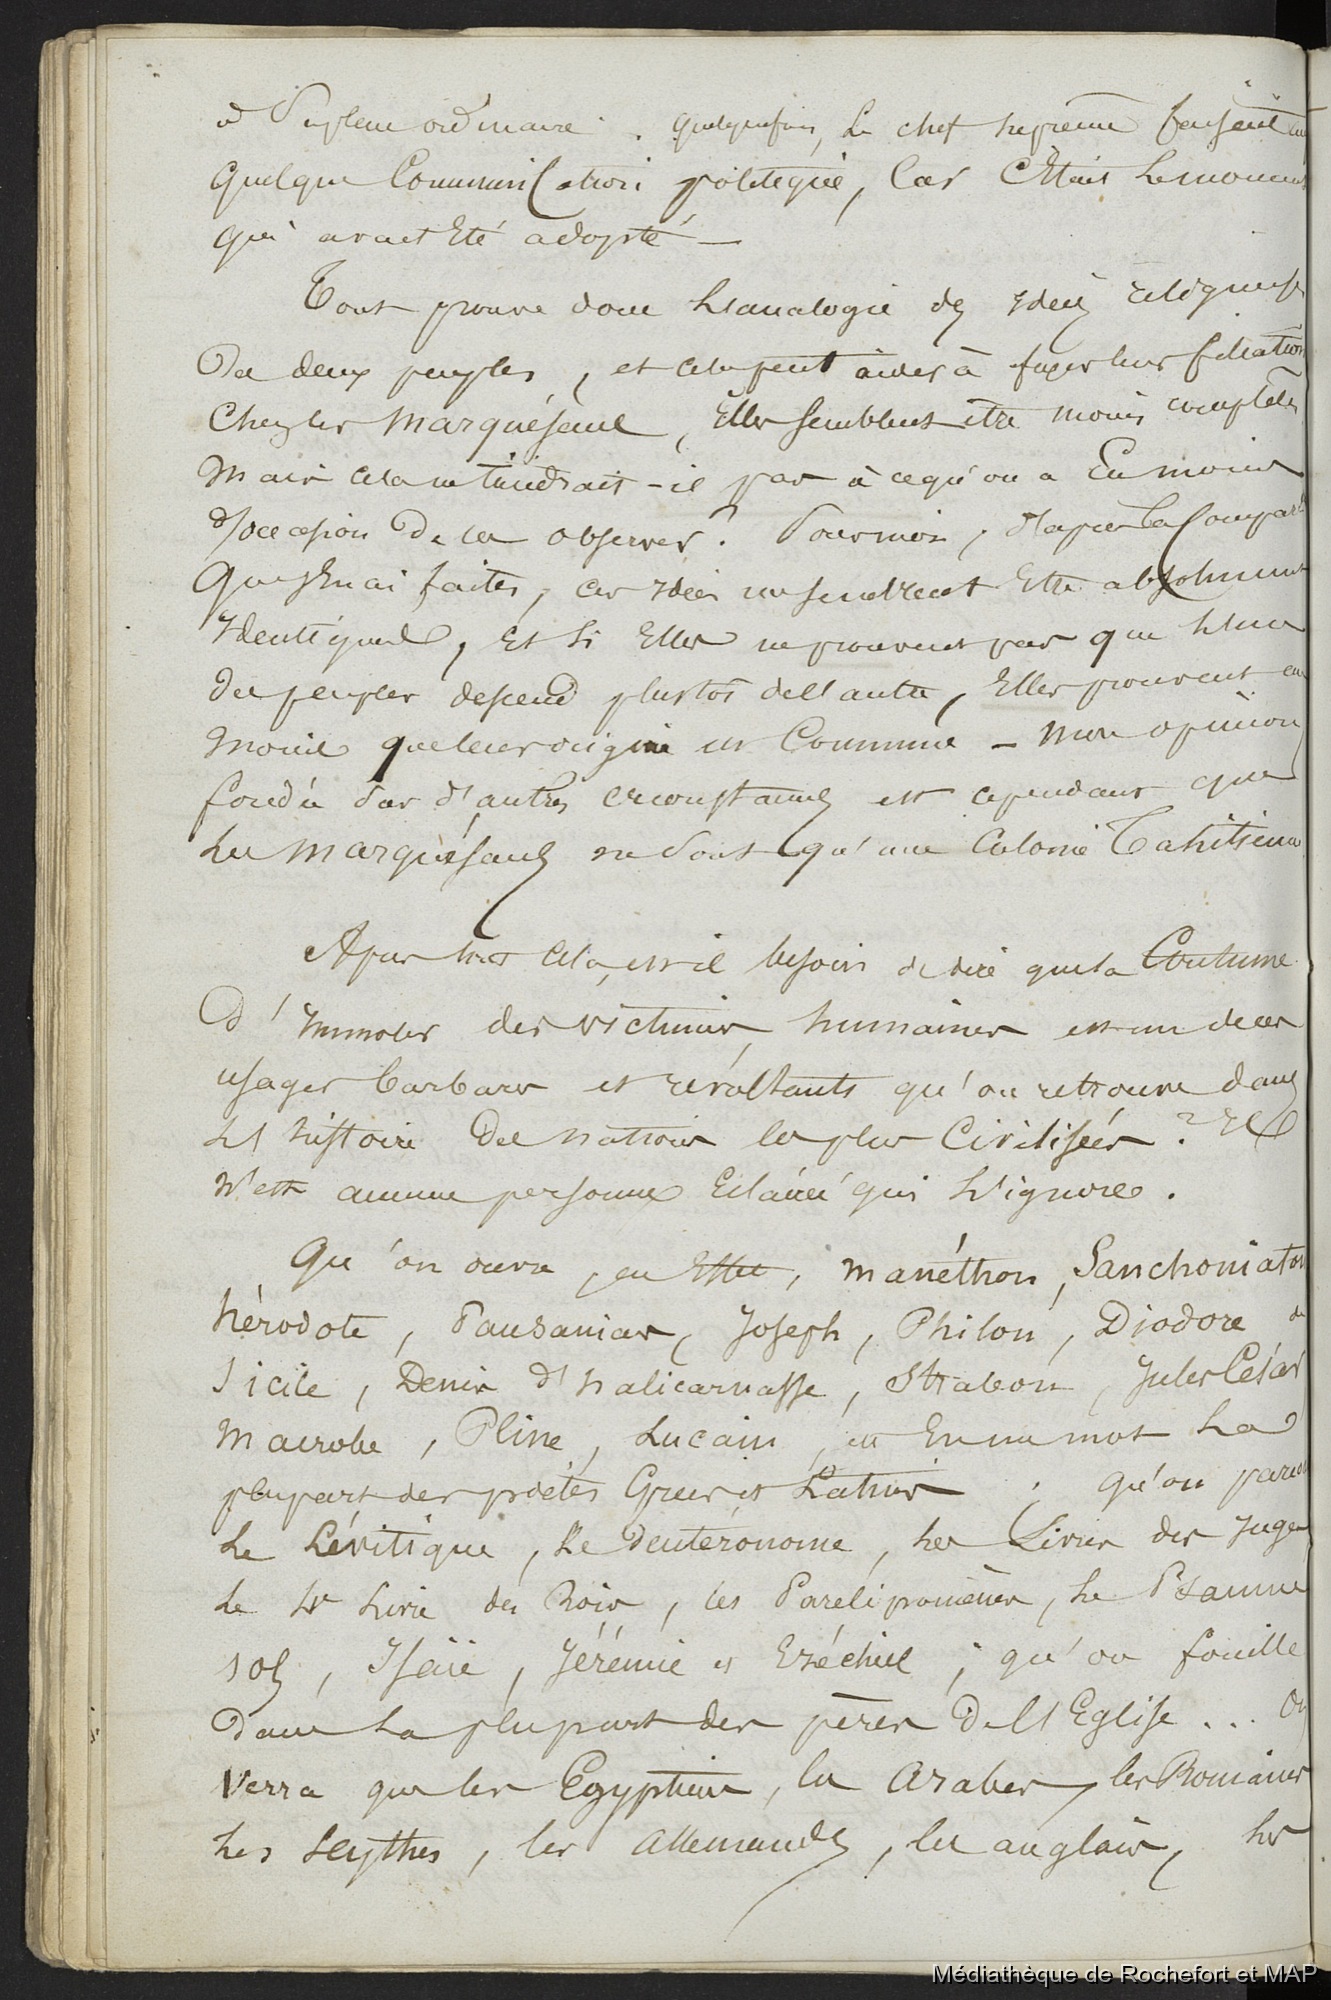 ordinaire. Quelquefois, le chef suprême faisait
quelque communication politique, car c'était le moment
qui avait été adopté —
Tout prouve donc l'analogie des idées religieuses
de deux peuples, et cela peut aider à fixer leur filiation
Chez les Marquésans, Elles semblent être moins complètes
Mais cela ne tiendrait-il pas à ce qu'on a Eu moins
d'occasion de les observer ? Pour moi, d'après la Compar.
que j'En ai faites, ces idées me semblent Etre absolument
Identiques, Et si Elles ne prouvent pas que l'un
des peuples descend plustot de l'autre, Elles prouvent au
moins que leur origine est Commune — mon opinion
fondée sur d'autres circonstances est cependant que
les Marquésans ne sont qu'une Colonie Tahitienne
Après tout cela, est-il besoin de dire que la Coutume
d'Immoler des victimes humaines est un de ces
usages barbares et révoltants qu'on retrouve dans
l'histoire des nations les plus Civilisées ? Il
n'est aucune personne Eclairée qui l'ignore.
Qu'on ouvre, en Effet, Manéthon, Sanchoniaton
hérodote, Pausanias, Joseph, Philon, Diodore de
Sicile, Denis d'halicarnasse, Strabon, Jules César
Macrobe, Pline, Lucain, et En un mot la
plupart des poètes Grecs et Latins ; qu'on parcoure
le Lévitique, le deutéronome, les Livres des Juges
le 4e Livre des Rois, les Paralipomènes, le Psaume
105, Isaïe, Jérémie et Ezéchiel ; qu'on fouille
dans la plupart des pères de l'Eglise ... On
verra que les Egyptiens, les Arabes, les Romains
les Scythes, les Allemands, les anglais, les
Médiathèque de Rochefort et MAP